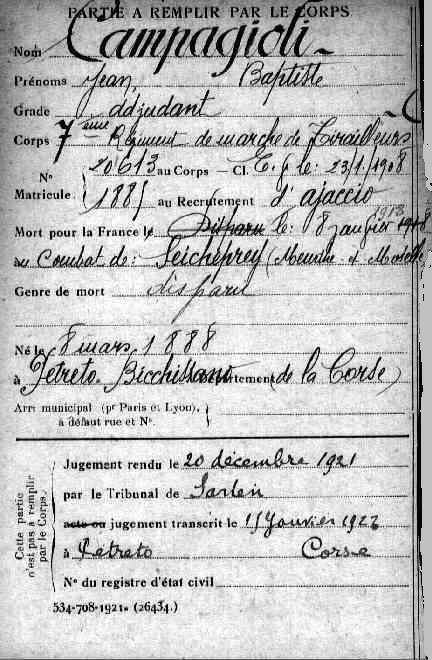 PARTIE A REMPLIR PAR LE CORPS
Nom Campagioli
Prénoms Jean, Baptiste
Grade adjudant
Corps 7ème Régiment de marche de Tirailleurs
N° Matricule. { 20613 au Corps — Cl. E. V. le: 23/1/1908
1885 au Recrutement d'ajaccio
Mort pour la France le Disparu le: 8 janvier 1918
au Combat de: Seicheprey (Meurthe et Moselle
Genre de mort disparu
Né le 8 mars 1888
à Petreto. Bicchisano Département (de la Corse)
Arr. municipal (pr Paris et Lyon), }
à défaut rue et N°.
Cette partie n'est pas à remplir par le Corps.
Jugement rendu le 20 décembre 1921
par le Tribunal de Sartène
acte ou jugement transcrit le 15 Janvier 1922
à Petreto Corse
N° du registre d'état civil
534-708-1921. (26434.)